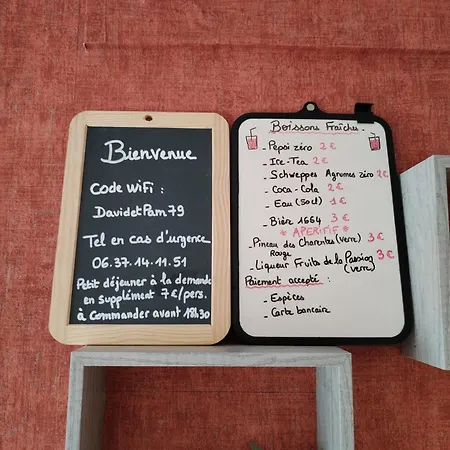 Bienvenue
Code WiFi :
DavidetPam79
Tel en cas d'urgence
06.37.14.11.51
Petit déjeuner à la demande
en supplément 7€/pers.
à Commander avant 18h30
Boissons Fraîches.
- Pepsi zéro 2€
- Ice-Tea 2€
- Schweppes Agrumes zéro 2€
- Coca-Cola 2€
- Eau (50cl) 1€
- Bière 1664 3€
* APERITIF *
- Pineau des Charentes (verre) 3€
Rouge
- Liqueur Fruits de la Passion 3€
(verre)
Paiement accepté :
- Espèces
- Carte bancaire